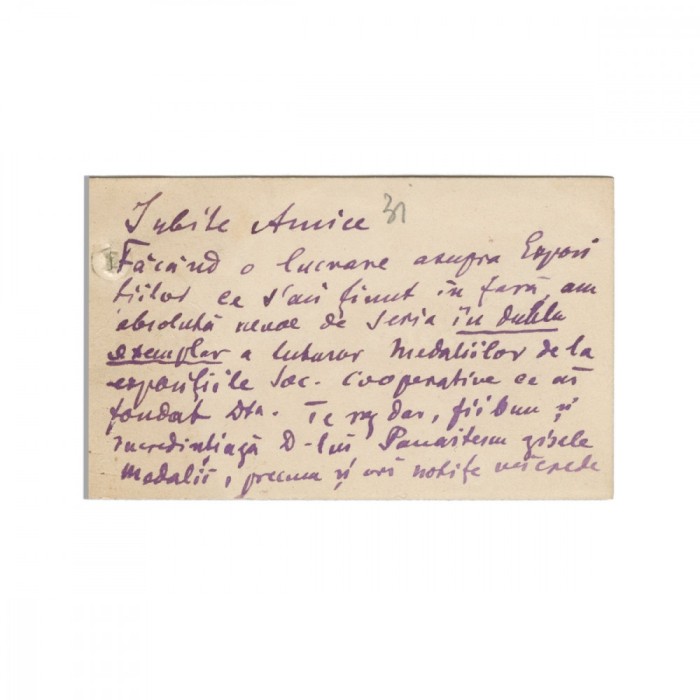 Iubite Amice 31
Făcând o lucrare asupra Expozi
țiilor ce s'au ținut în țară, am
absolută nevoe de seria în dublu
exemplar a tuturor medaliilor de la
expozițiile Soc. Cooperative ce ai
fondat Dta. Te rog dar, fii bun și
încredințiază D-lui Panaitescu zisele
medalii, precum și ori notițe